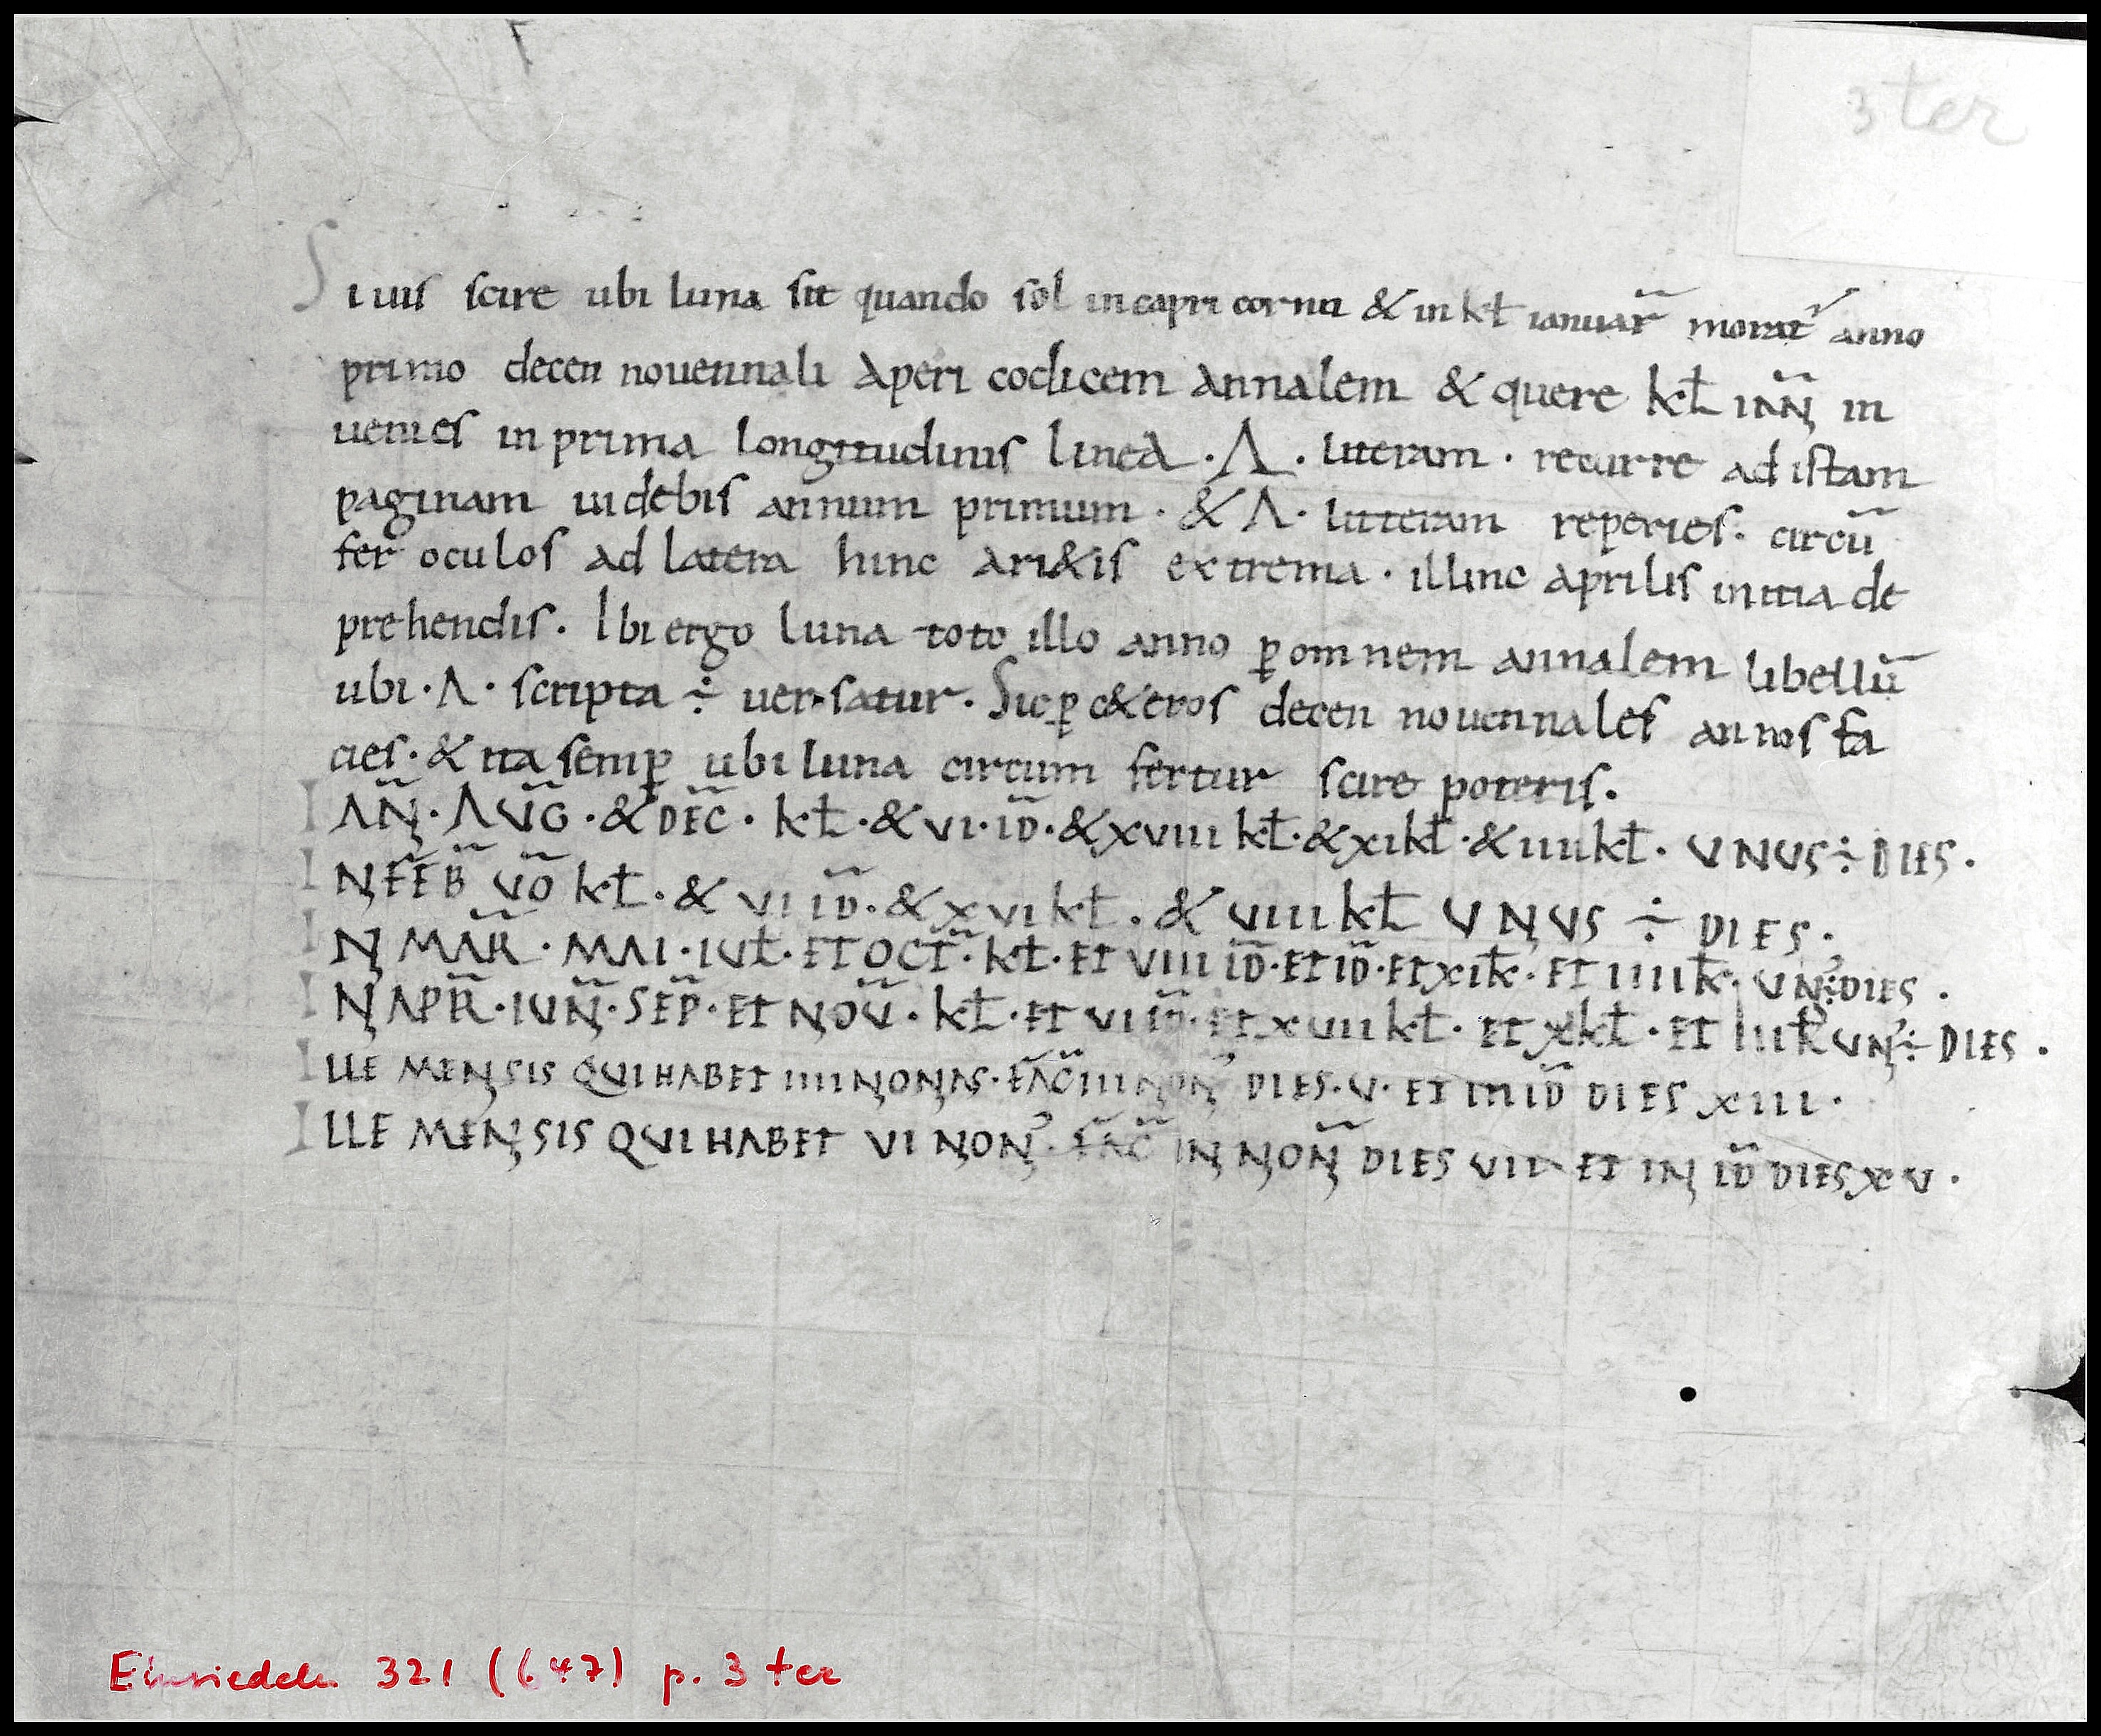 3 ter
Si uis scire ubi luna sit quando sol in capricornu & in kł ianuar̃ morat᷑ anno
primo decennouennali Aperi codicem annalem & quere kł IAÑ in
uenies in prima longitudinis linea · Λ · literam · recurre ad istam
paginam uidebis annum primum · & Λ · litteram reperies · circū
fer oculos ad latera hinc ari&is extrema · illinc aprilis initia de
prehendis. Ibi ergo luna toto illo anno ꝑ omnem annalem libellū
ubi · Λ · scripta ÷ uersatur. Sic ꝑ c&eros decennouennales annos fa
cies · & ita semꝑ ubi luna circumfertur scire poteris.
IAÑ · AUG̃ · & DEC̃ · kł · & VI · ID̃ · & XVIII kł · & XI kł · & IIII kł · UNUS ÷ DIES ·
IN FEB̃ UÕ kł · & VI ID̃ · & XVI kł · & VIIII kł UNUS ÷ DIES ·
IN MAR̃ · MAI · IUł · ET OCT̃ · kł · ET VIIII ID̃ · ET ID̃ · ET XII k̵ · ET IIII k̵ · UN᾿ ÷ DIES ·
IN APR̃ · IUÑ · SEP̃ · ET NOṼ · kł · ET VI ID̃ · ET XVII kł · ET X kł · ET III k̵ UN᾿ ÷ DIES ·
ILLE MENSIS QUI HABET IIII NONAS · FAC̃ IN NON᾿ DIES · V · ET IN ID̃ DIES XIII ·
ILLE MENSIS QUI HABET VI NON᾿ · FAC̃ IN NOÑ DIES VII ET IN ID̃ DIES XV ·
Einsiedeln 321 (647) p. 3 ter